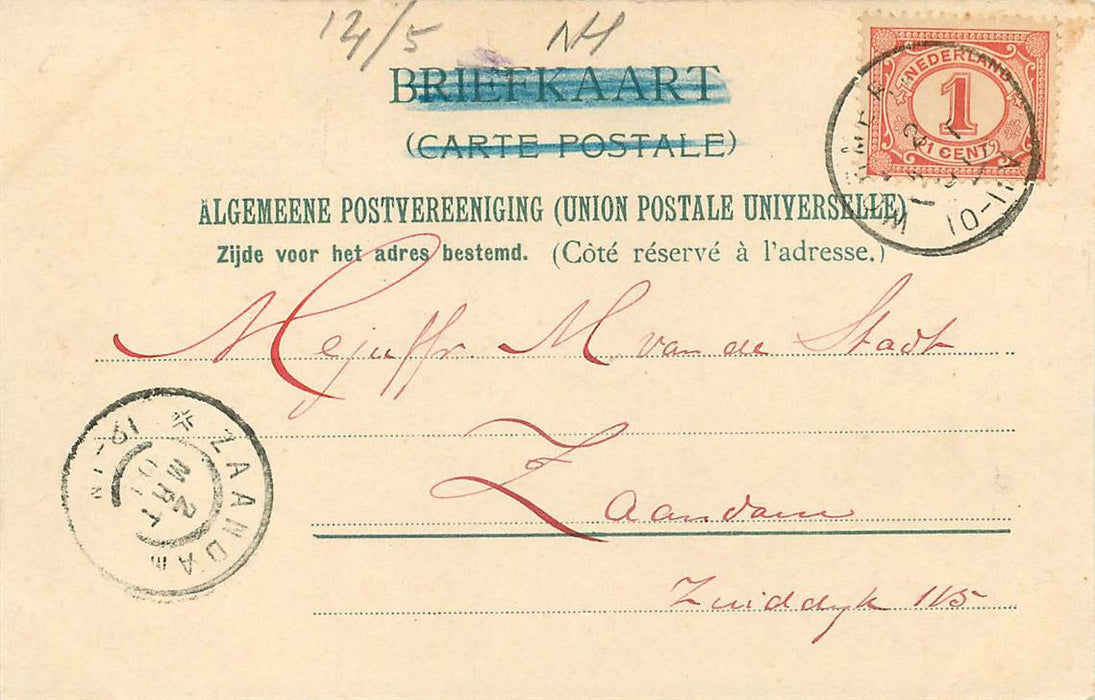 12/5 NH
BRIEFKAART
(CARTE POSTALE)
NEDERLAND
1
1 CENT
ALGEMEENE POSTVEREENIGING (UNION POSTALE UNIVERSELLE)
Zijde voor het adres bestemd. (Côté réservé à l'adresse.)
Mejuffr. M. van de Stadt
Zaandam
Zuiddyk 115
ZAANDAM
2 MRT 01